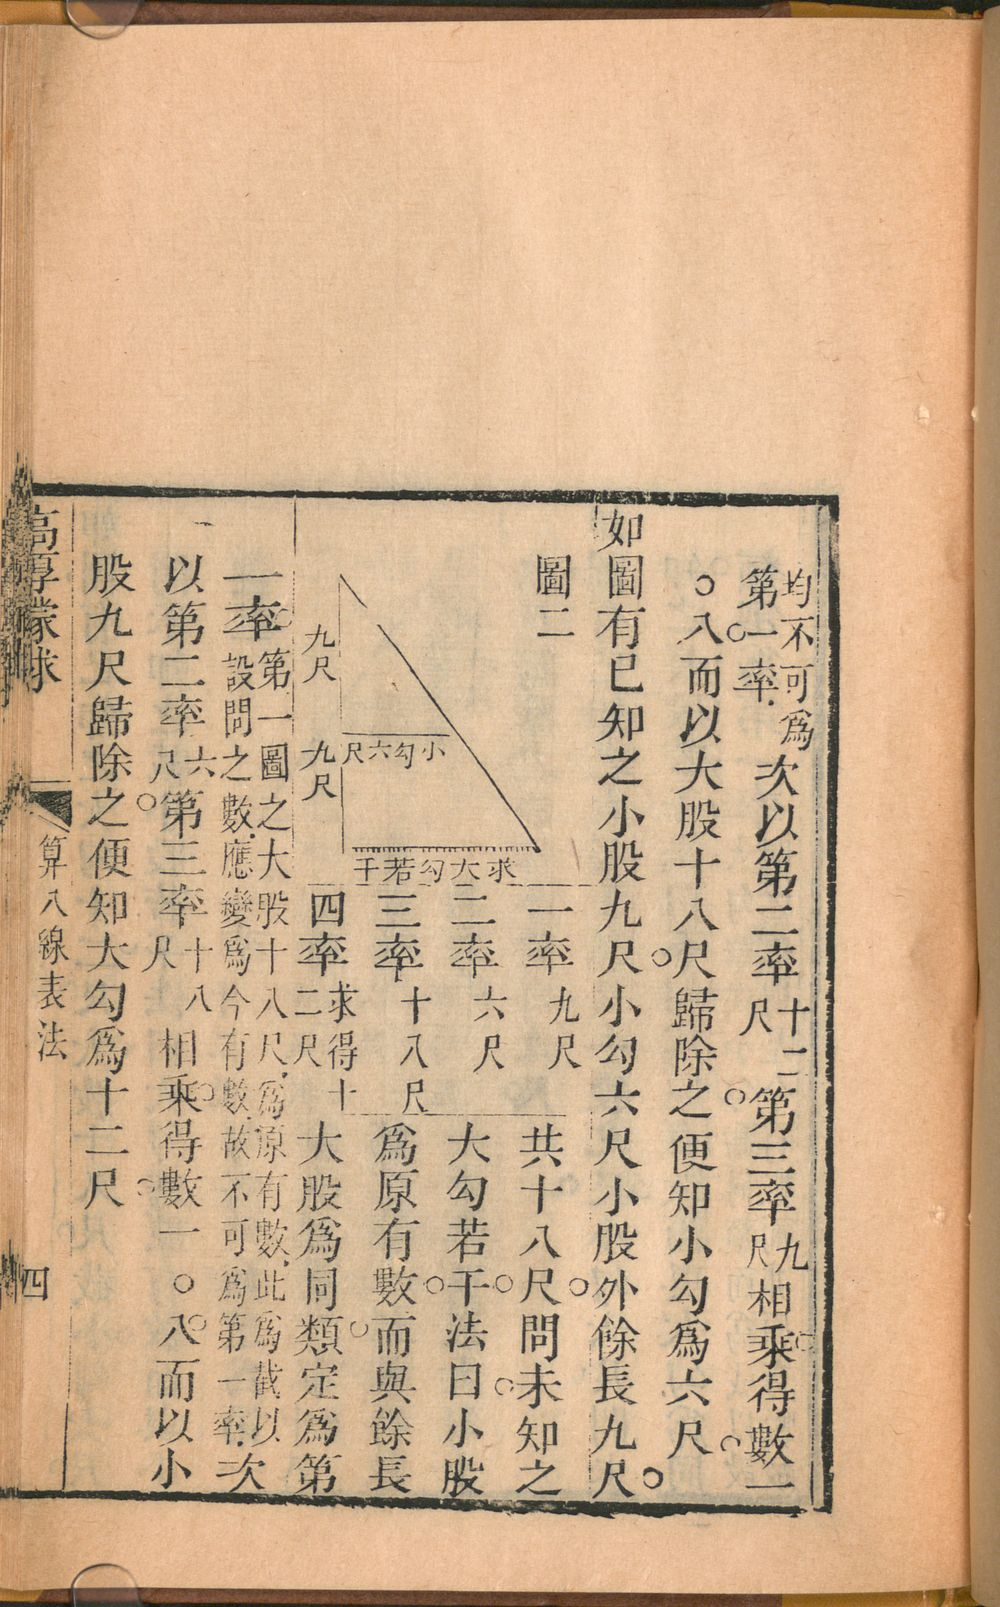 均不可爲
第一率
次以第二率十二尺第三率九尺相乘得數一
○八而以大股十八尺歸除之便知小勾爲六尺
如圖有已知之小股九尺小勾六尺小股外餘長九尺
圖二
九尺
九尺
小勾六尺
求大勾若干
一率九尺
二率六尺
三率十八尺
四率求得十二尺
共十八尺問未知之
大勾若干法曰小股
爲原有數而與餘長
大股爲同類定爲第
一率第一圖之大股十八尺爲原有數此爲截以
設問之數應變爲今有數故不可爲第一率次
以第二率六尺第三率十八尺相乘得數一○八而以小
股九尺歸除之便知大勾爲十二尺
高厚蒙求
算八線表法
四